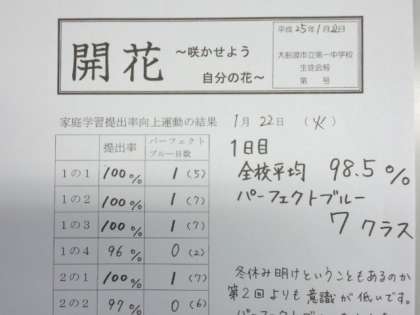 開花 ～咲かせよう
自分の花～
平成25年1月22日
大船渡市立第一中学校
生徒会報
第 号
家庭学習提出率向上運動の結果 1月22日 (火)
提出率 パーフェクトブルー日数
1の1 100% 1(5)
1の2 100% 1(7)
1の3 100% 1(7)
1の4 96% 0(2)
2の1 100% 1(7)
2の2 97% 0(6)
1日目
全校平均 98.5%
パーフェクトブルー
7クラス
冬休み明けということもあるのか
第2回よりも意識が低いです。